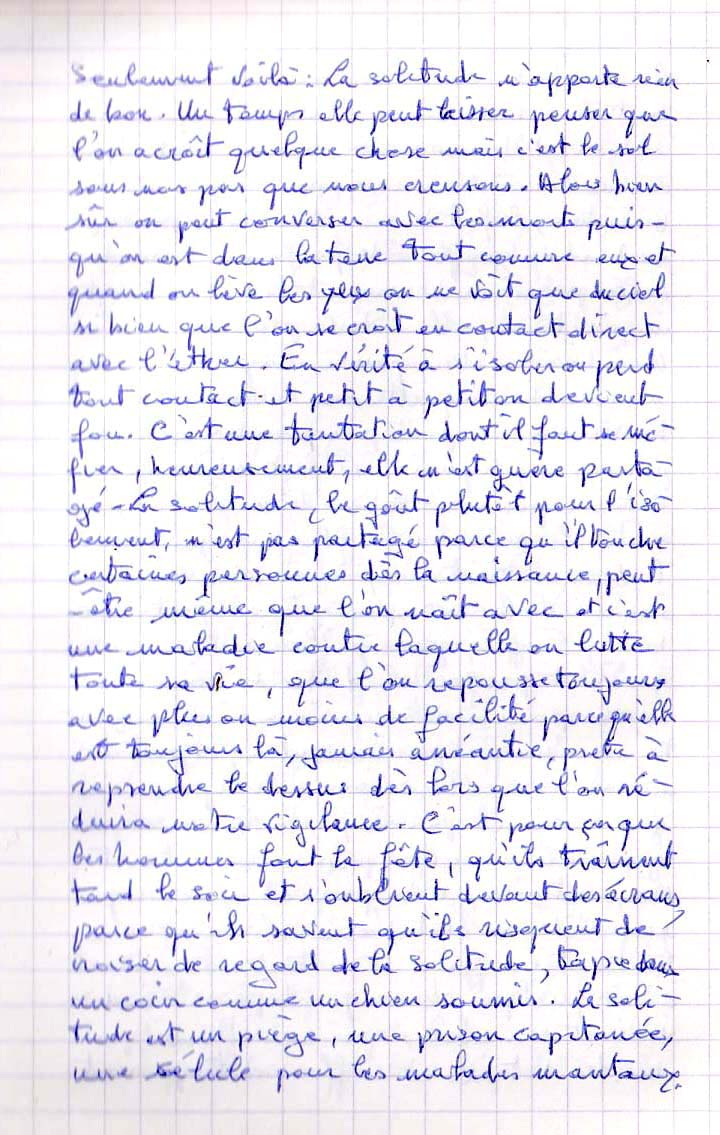 Seulement voilà : La solitude n'apporte rien
de bon. Un temps elle peut laisser penser que
l'on accroît quelque chose mais c'est le sol
sous nos pas que nous creusons. Alors bien
sûr on peut converser avec les morts puis-
qu'on est dans la terre tout comme eux et
quand on lève les yeux on ne voit que du ciel
si bien que l'on se croit en contact direct
avec l'éther. En vérité à s'isoler on perd
tout contact et petit à petit on devient
fou. C'est une tentation dont il faut se mé-
fier, heureusement, elle n'est guère parta-
gé - La solitude, le goût plutôt pour l'iso
lement, n'est pas partagé parce qu'il touche
certaines personnes dès la naissance, peut
-être même que l'on naît avec et c'est
une maladie contre laquelle on lutte
toute sa vie, que l'on repousse toujours
avec plus ou moins de facilité parce qu'elle
est toujours là, jamais anéantie, prête à
reprendre le dessus dès lors que l'on ré-
duira notre vigilance. C'est pour ça que
les hommes font la fête, qu'ils traînent
tard le soir et s'oublient devant des écrans,
parce qu'ils savent qu'ils risquent de
croiser le regard de la solitude, tapie dans
un coin comme un chien soumis. La soli-
tude est un piège, une prison capitonée,
une célule pour les malades mentaux.